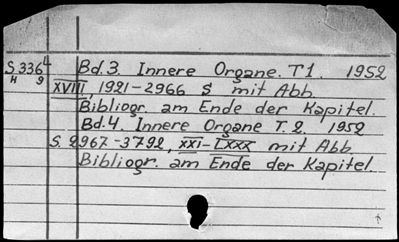 S.336⁴ Bd.3. Innere Organe. T1. 1952
H 9 XVIII, 1921-2966 S mit Abb
Bibliogr. am Ende der Kapitel.
Bd.4. Innere Organe T.2. 1952
S. 2967-3792, XXI-LXXX mit Abb
Bibliogr. am Ende der Kapitel.